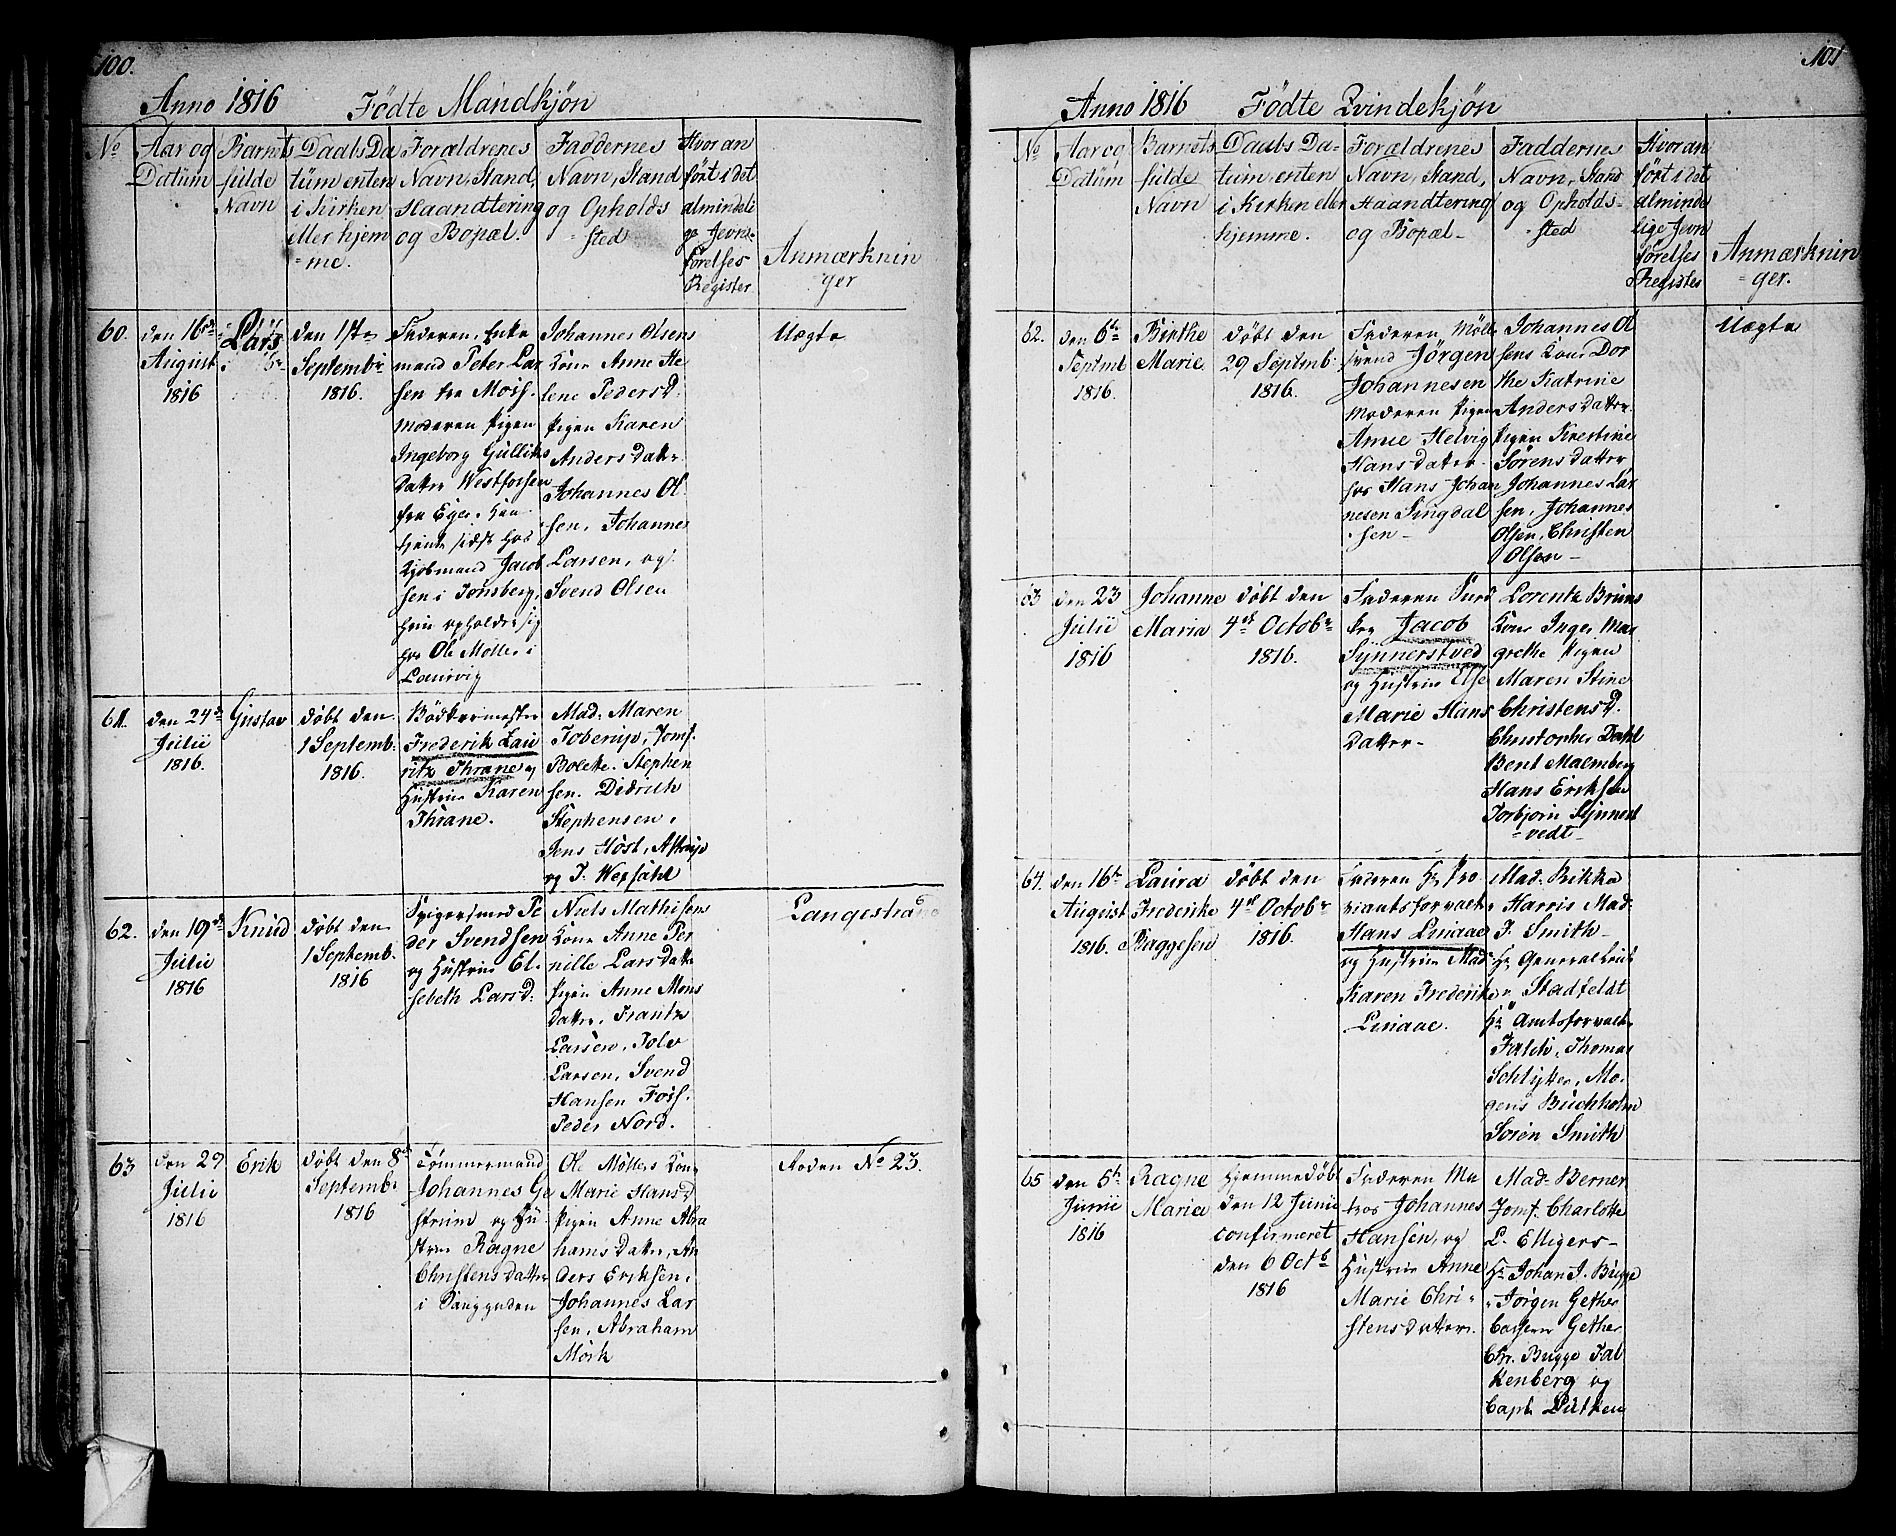 100.
Anno 1816 Födte Mandkjön
No
Aar og
Datum
Barnets
fulde
Navn
Daabs Da
tum enten
i Kirken
eller hjem
me.
Forældrenes
Navn, Stand,
Haandtering
og Bopæl.
Faddernes
Navn, Stand
og Opholds
sted
Hvor an
fört i det
almindeli
ge Jevn-
förelses
Register
Anmærknin
ger
60.
den 16de
August
1816
Lars
den 1ste
Septembr
1816.
Faderen, Enke
mand Peter Lar
sen fra Moss.
Moderen Pigen
Ingeborg Gulliks
datter Westfossen
fra Eger. Hun
tjente sidst hos
Kjöbmand Jacob
sen i Tonsberg,
hun opholder sig
hos Ole Möller i
Laurvig
Johannes Olsens
Kone Anne He
lene Peders D.
Pigen Karen
Andersdatter
Johannes Ol
sen, Johannes
Larsen, og
Svend Olsen
Uægte
61.
den 24de
Julii
1816.
Gustav
döbt den
1 Septemb.
1816.
Bödkermester
Frederik Lau
ritz Thrane og
Hustrue Karen
Thrane.
Mad. Maren
Toberup, Jomf.
Bolette Stephen
sen. Didrich
Stephensen,
Jens Höst, Astrup
og J. Wepfahl
62.
den 19de
Julii
1816
Knud
döbt den
1 Septemb.
1816
Peder Svendsen
og Hustrue El-
sebeth Lars D.
Niels Mathisens
Kone Anne Per
nille Larsdatter
Pigen Anne Mons
datter, Frantz
Larsen, Tolv
Larsen, Svend
Hansen Foss.
Peder Nord.
Langestrand
63
den 29
Julii
1816
Erik
döbt den 8de
Septembr
1816
Tömmermand
Johannes Ge
strum og Hu
strue Ragne
Christensdatter
i
Ole Möllers Kone
Marie Hans D
Pigen Anne Abra
hamsdatter, An
ders Eriksen,
Johannes Lar
sen, Abraham
Mörk
Roden No 23.
101
Anno 1816 Födte Qvindekjön
No
Aar og
Datum
Barnets
fulde
Navn
Daabs Da-
tum, enten
i Kirken eller
hjemme.
Forældrenes
Navn, Stand,
Haandtering
og Bopæl
Faddernes
Navn, Stand
og Opholds-
sted
Hvor an
fört i det
alminde
lige Jevn
förelses
Registes
Anmærknin
ger.
62.
den 6te
Septembr
1816.
Birthe
Marie
döbt den
29 Septemb.
1816.
Faderen, Mölle
svend Jörgen
Johannesen
Moderen Pigen
Anne Helvig
Hansdatter
hos Hans Johan
nesen Singdal
sen
Johannes Ol
sens Kone Dor
the Katrine
Andersdatter
Pigen Kirstine
Sörensdatter
Johannes Lar
sen, Johannes
Olsen, Christen
Olsen
Uægte
63
den 23
Julii
1816
Johanne
Maria
döbt den
4de Octobr
1816.
Faderen
Jacob
Synnerstved
og Hustrue Else
Marie Hans
Datter
Lorentz Bruns
Kone Inger Mar
grethe Pigen
Maren Stine
Christens D.
Christopher Dahl
Bent Malmberg
Hans Eriksen
Torbjörn Synnest
vedt
64.
den 16te
August
1816.
Laura
Frederike
Baggesen
döbt den
4de Octobr
1816.
Faderen Hr Pro
viantsforvalt
Hans Linaae
og Hustrue Mad.
Karen Frederike
Linaae.
Mad. Rikka
Harris Mad.
J. Smith
Hr General krigs
Stadfeldt
Hr Amtsforvalt
Falch, Thomas
Schlytter, Mo-
gens Buchholm
Sören Smith
65
den 5te
Junii
1816
Ragne
Maria
Hjemmedöbt
den 12 Junii
confirmeret
den 6 Octb
1816
Faderen Ma
tros Johannes
Hansen, og
Hustrue Anne
Marie Chri-
stensdatter.
Mad. Berner
Jomf. Charlotte
L. Elligers
Hr Johan J. Bugge
Jörgen Gether
Carsten Gether
Chr. Bugge Fal
kenberg og
Capt. Lütken